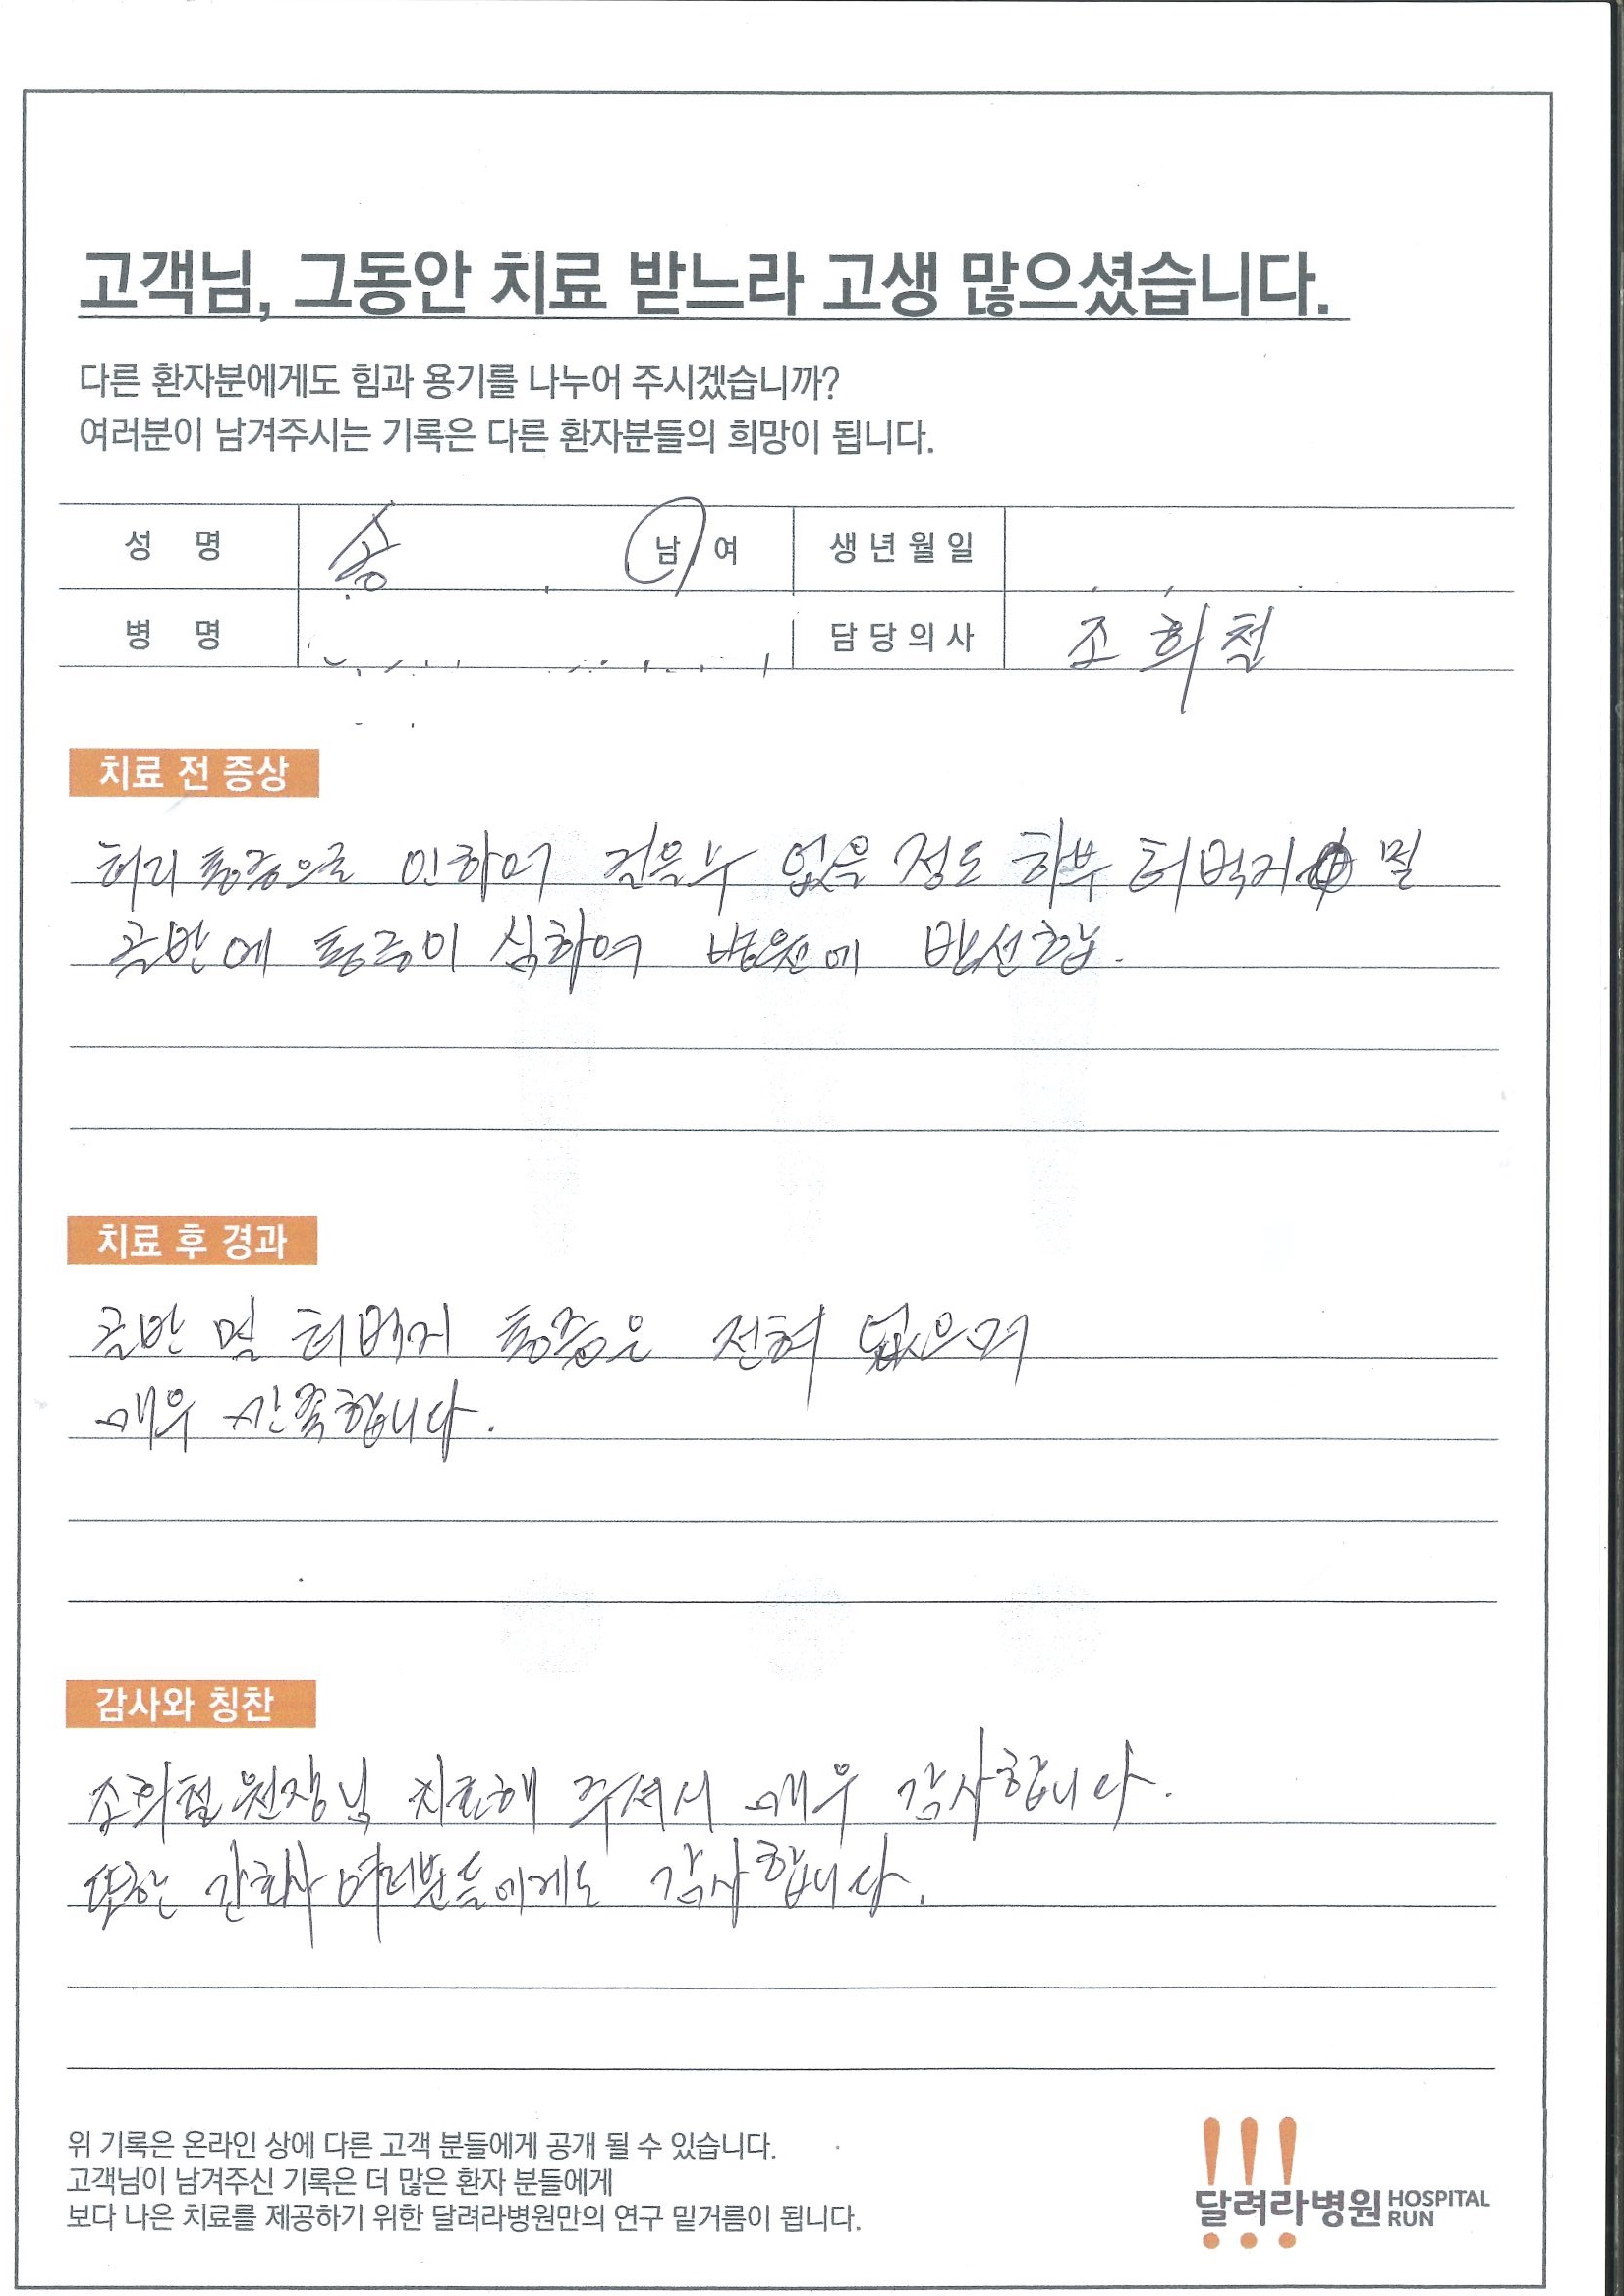 고객님, 그동안 치료 받느라 고생 많으셨습니다.
다른 환자분에게도 힘과 용기를 나누어 주시겠습니까?
여러분이 남겨주시는 기록은 다른 환자분들의 희망이 됩니다.
성 명 송 남 / 여 생년월일
병 명 담당의사 조희철
치료 전 증상
허리 통증으로 인하여 걸을 수 없을 정도 하부 터벅지 및
골반에 통증이 심하여 병원에
치료 후 경과
골반 및 터벅지 통증은 전혀 없으며
매우 만족합니다.
감사와 칭찬
조희철 원장님 치료해 주셔서 매우 감사합니다.
또한 간호사 여러분들에게도 감사합니다.
위 기록은 온라인 상에 다른 고객 분들에게 공개 될 수 있습니다.
고객님이 남겨주신 기록은 더 많은 환자 분들에게
보다 나은 치료를 제공하기 위한 달려라병원만의 연구 밑거름이 됩니다.
달려라병원 HOSPITAL RUN